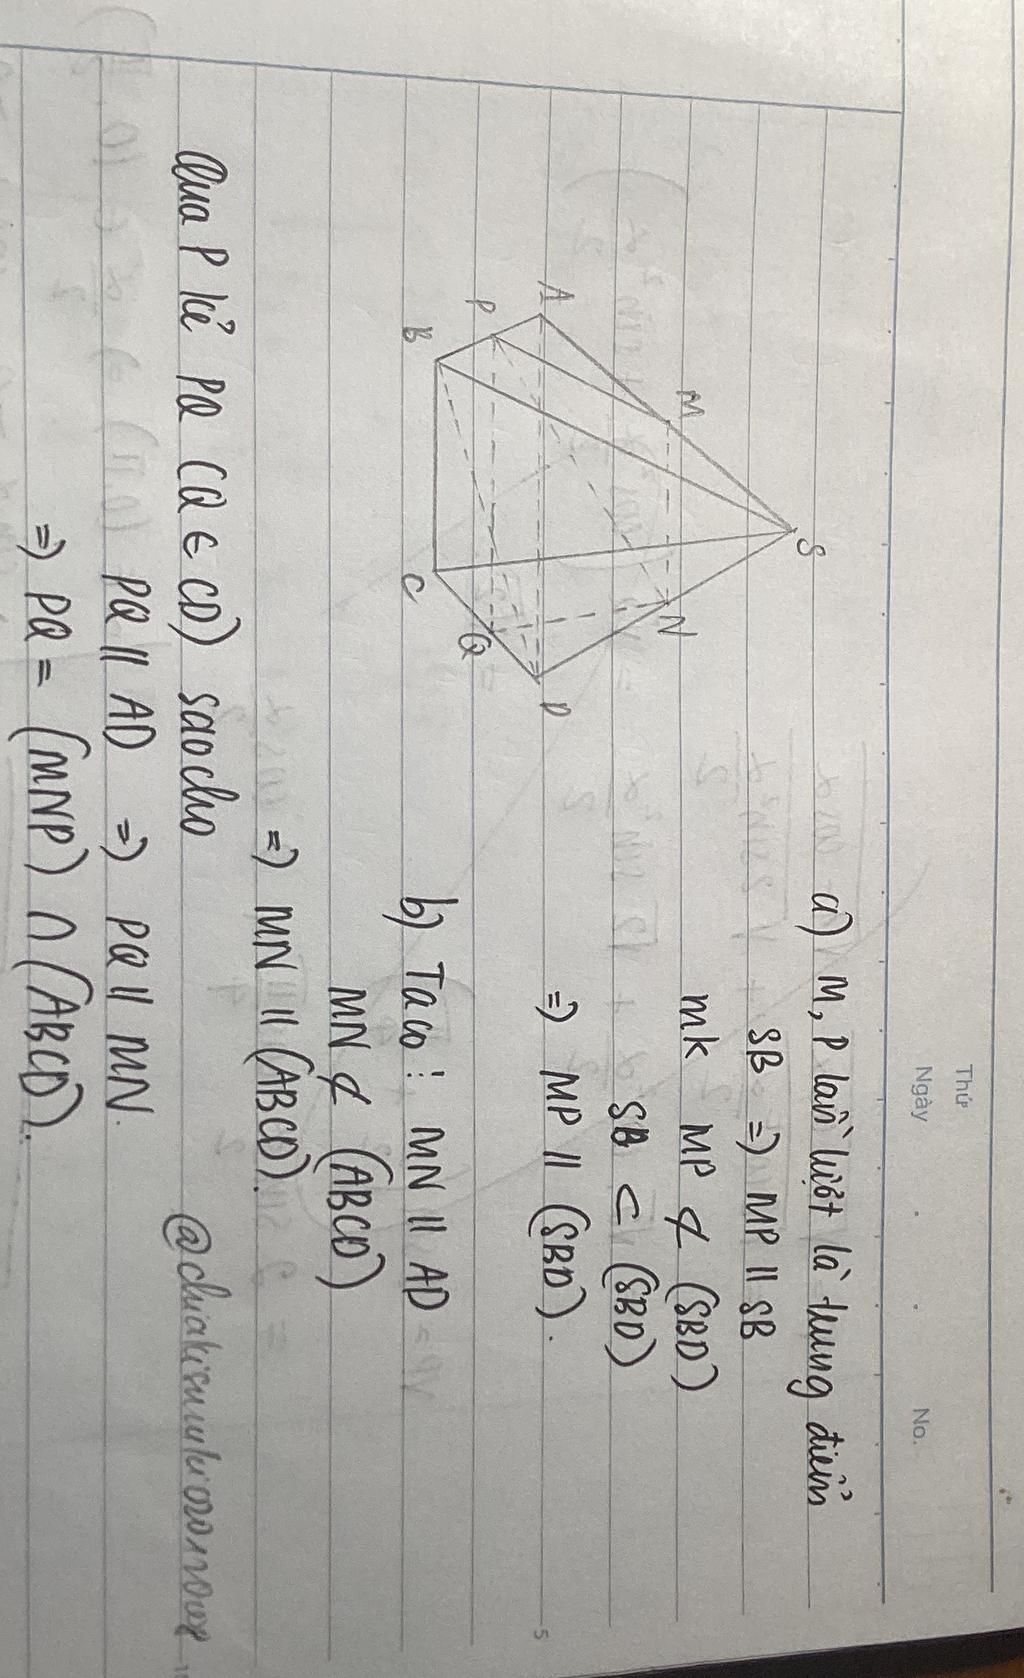 Thứ
Ngày . . No.
a) M, P lần lượt là trung điểm
SB => MP // SB
mk MP ⊄ (SBD)
SB ⊂ (SBD)
=> MP // (SBD).
S
M
N
A
D
P
Q
B
C
5
b) Ta có : MN // AD
MN ⊄ (ABCD)
=> MN // (ABCD).
Qua P kẻ PQ (Q ∈ CD) sao cho
PQ // AD => PQ // MN.
=> PQ = (MNP) ∩ (ABCD).